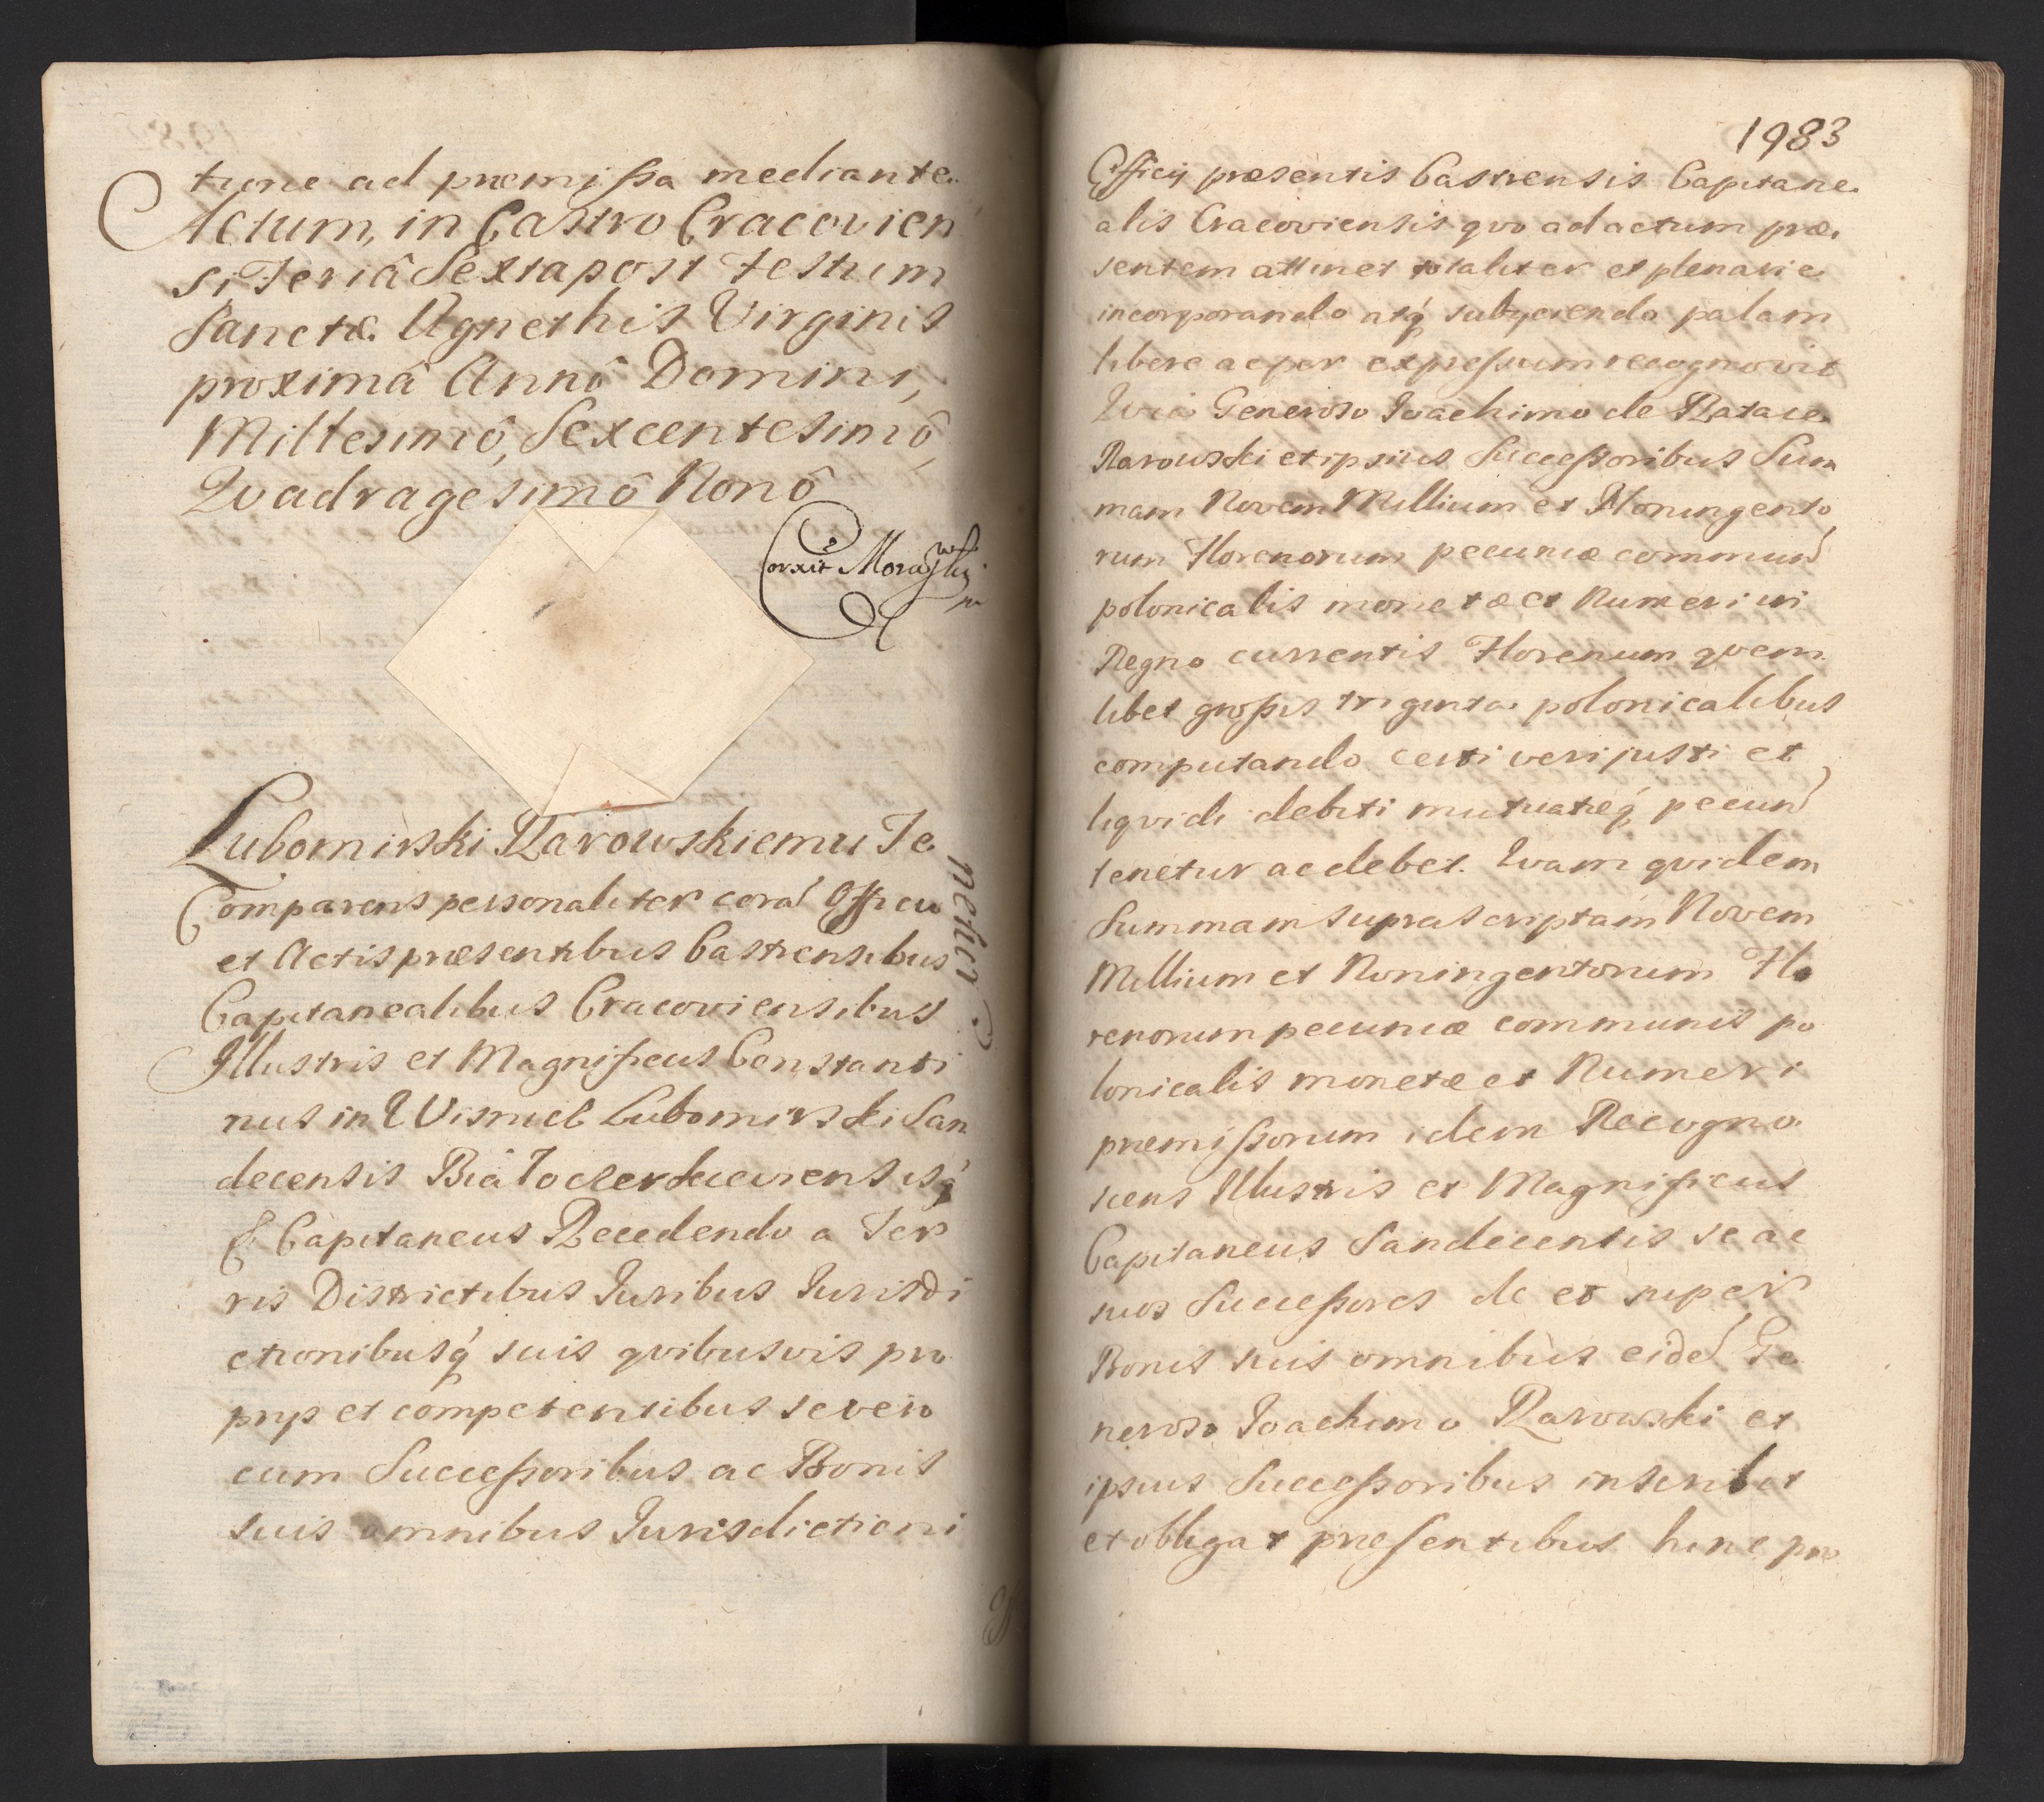 tione ad præmissa mediante.
Actum, in Castro Cracovien
si Feriâ Sexta post Festum
Sanctæ Agnethis Virginis
proximâ Annô Domini,
Millesimô, Sexcentesimô,
Qvadragesimô Nonô
Corxit
Lubomirski Rarowskiemu Te
netur
Comparens personaliter corā Officio
et Actis præsentibus Castrensibus
Capitanealibus Cracoviensibus
Illustris et Magnificus Constanti
nus in Wisnicz Lubomirski San
decensis
& Capitaneus Recedendo a Ter
ris Districtibus Iuribus Iurisdi
ctionibusq́ suis qvibusvis pro
prijs et competentibus se vero
cum Successoribus ac Bonis
suis omnibus Iurisdictioni
1983
Officij præsentis Castrensis Capitane
alis Cracoviensis qvo ad actum præ
sentem attinet totaliter et plenarie
incorporando atq́ subijciendo palam
libere ac per expressum recognovit
Qvia Generoso Ioachimo de
Rarowski et ipsius Successoribus Sum
mam Novem Millium et Noningento
rum Florenorum pecuniæ commun
polonicalis monetæ et Numeri in
Regno currentis Florenum qvem
libet grossis triginta polonicalibus
computando certi veri justi et
liqvidi debiti mutuatæq́ pecun
tenetur ac debet. Qvam qvidem
Summam suprascriptam Novem
Millium et Noningentorum Flo
renorum pecuniæ communis po
lonicalis monetæ et Numeri
præmissorum idem Recogno
scens Illustris et Magnificus
Capitaneus Sandecensis se ac
suos Successores de et super
Bonis suis omnibus eidē Ge
neroso Ioachimo Rarowski et
ipsius Successoribus inscribit
et obligat præsentibus hinc pro